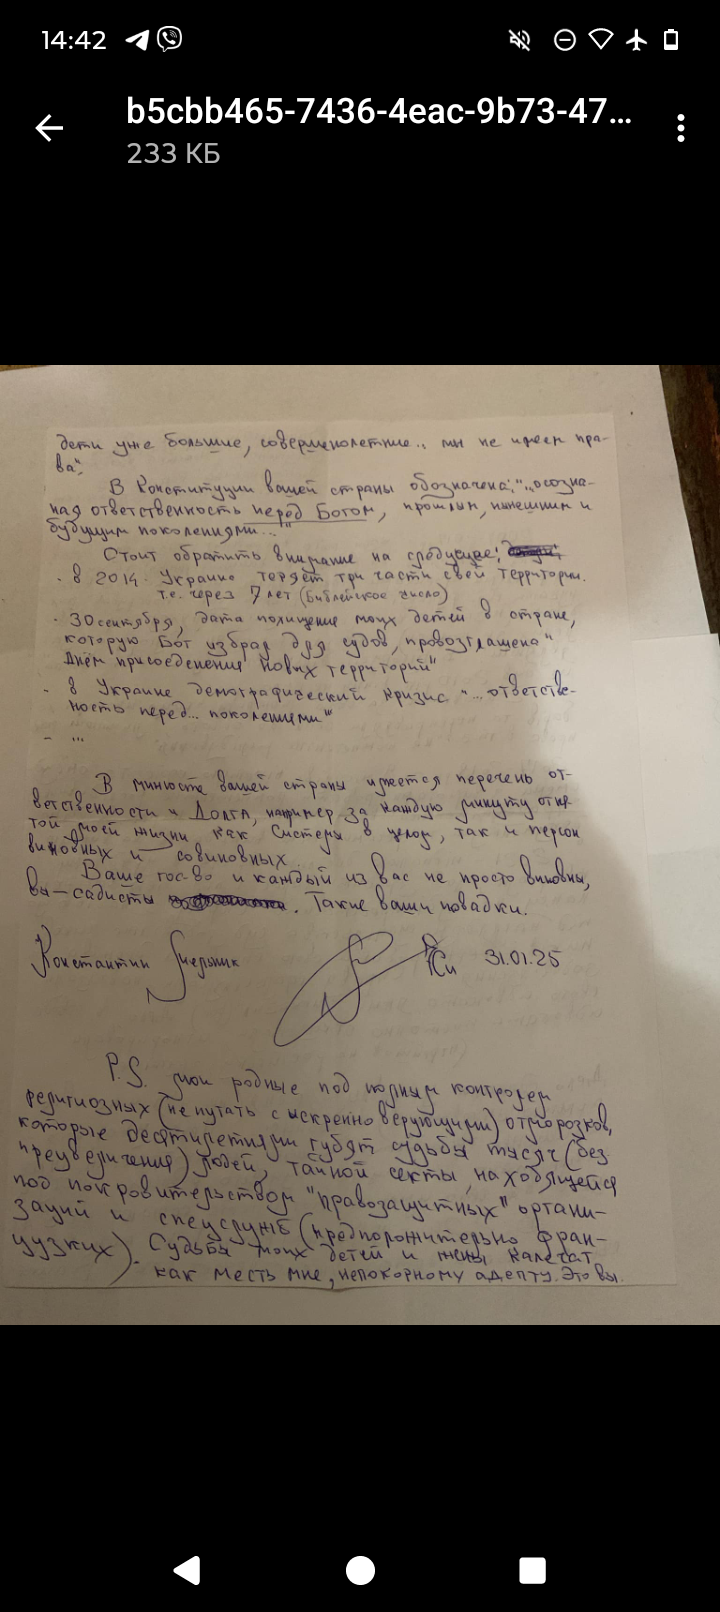 14:42
b5cbb465-7436-4eac-9b73-47...
233 КБ
дети уже большие, совершенолетние.. мы не имеем пра-
ва".
В Конституции вашей страны обозначена: "..осозна-
ная ответственность перед Богом, прошлым, нынешним и
будущим поколениями..."
Стоит обратить внимание на следующее:
- в 2014 Украина теряет три части свей территории.
т.е. через 7 лет (Библейское число)
- 30 сентября, дата похищение моих детей в стране,
которую Бог избрал для судов, провозглашена "
Днём присоеденения новых территорий"
- в Украине демографический кризис "...ответстве-
ность перед... поколениями"
- ...
В минюсте вашей страны имеется перечень от-
ветственности и Долга, например за каждую минуту отня-
той моей жизни как Системы в целом, так и персон
виновных и совиновных.
Ваше гос-во и каждый из вас не просто виновны,
вы – садисты . Такие ваши повадки.
Константин 31.01.25
P.S. мои родные под полным контролем
религиозных (не путать с искренно верующими) отморозков,
которые десятилетиями губят судьбы тысяч (без
преувеличения) людей, тайной секты, находящейся
под покровительством "правозащитных" органи-
заций и спецслужб (предположительно фран-
цузких). Судьбы моих детей и жены калечат
как месть мне, непокорному адепту. Это вы.